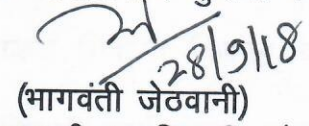 28/9/18
(भागवंती जेठवानी)